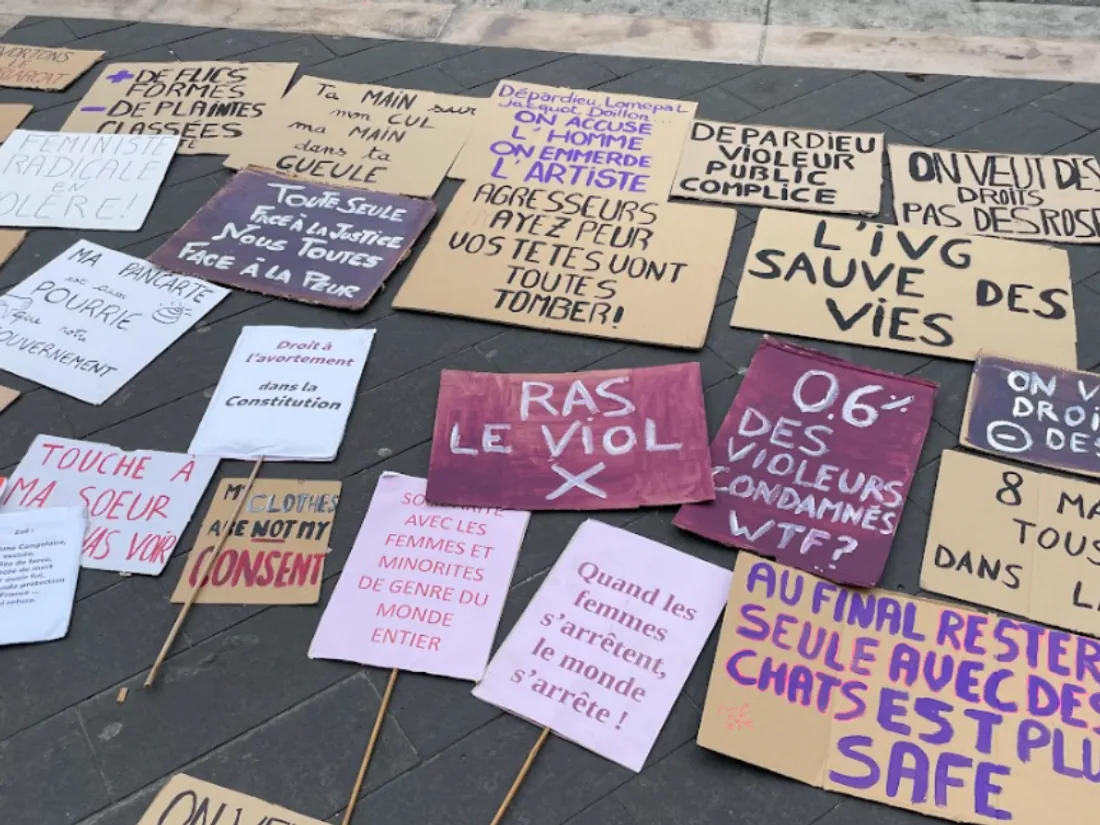 + DE FLICS
FORMÉS
- DE PLAINTES
CLASSÉES
Ta MAIN sur
mon CUL
ma MAIN
dans ta
GUEULE
Dépardieu, Lomepal
Jacquot, Doillon...
ON ACCUSE
L'HOMME
ON EMMERDE
L'ARTISTE
DEPARDIEU
VIOLEUR
PUBLIC
COMPLICE
ON VEUT DES
DROITS
PAS DES ROSE
FÉMINISTE
RADICALE
EN
TOUTE SEULE
FACE À LA JUSTICE
NOUS TOUTES
FACE À LA PEUR
AGRESSEURS
AYEZ PEUR
VOS TETES VONT
TOUTES
TOMBER!
L'IVG
SAUVE DES
VIES
MA PANCARTE
est aussi
POURRIE
que notre
GOUVERNEMENT
Droit à
l'avortement
dans la
Constitution
RAS
LE VIOL
X
0.6%
DES
VIOLEURS
CONDAMNÉS
WTF?
ON V
DROI
- DES
TOUCHE À
MA SOEUR
T'VAS VOIR
MY CLOTHES
ARE NOT MY
CONSENT
AVEC LES
FEMMES ET
MINORITÉS
DE GENRE DU
MONDE
ENTIER
Quand les
femmes
s'arrêtent,
le monde
s'arrête !
8 MA
TOUS
DANS L
AU FINAL RESTER
SEULE AVEC DES
CHATS EST PLU
SAFE
ON VE